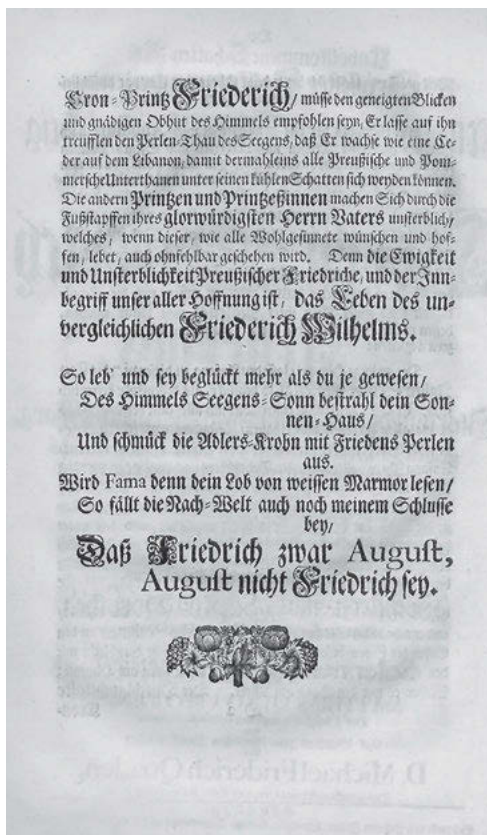 Cron-Printz Friederich/ müsse den geneigten Blicken
und gnädigen Obhut des Himmels empfohlen seyn, Er lasse auf ihn
treufflen den Perlen-Thau des Seegens, daß Er wachse wie eine Ce-
der auf dem Libanon, damit dermahleins alle Preußische und Pom-
mersche Unterthanen unter seinen kühlen Schatten sich weyden können.
Die andern Printzen und Printzeßinnen machen Sich durch die
Fußstapffen ihres glorwürdigsten Herrn Vaters unsterblich/
welches, wenn dieser, wie alle Wohlgesinnete wünschen und hof-
fen, lebet, auch ohnfehlbar geschehen wird. Denn die Ewigkeit
und Unsterblichkeit Preußischer Friedriche, und der Inn-
begriff unser aller Hoffnung ist, das Leben des un-
vergleichlichen Friederich Wilhelms.
So leb' und sey beglückt mehr als du je gewesen/
Des Himmels Seegens-Sonn bestrahl dein Son-
nen-Haus/
Und schmück die Adlers-Krohn mit Friedens Perlen
aus.
Wird Fama denn dein Lob von weissen Marmor lesen/
So fällt die Nach-Welt auch noch meinem Schlusse
bey/
Daß Friedrich zwar August,
August nicht Friedrich sey.